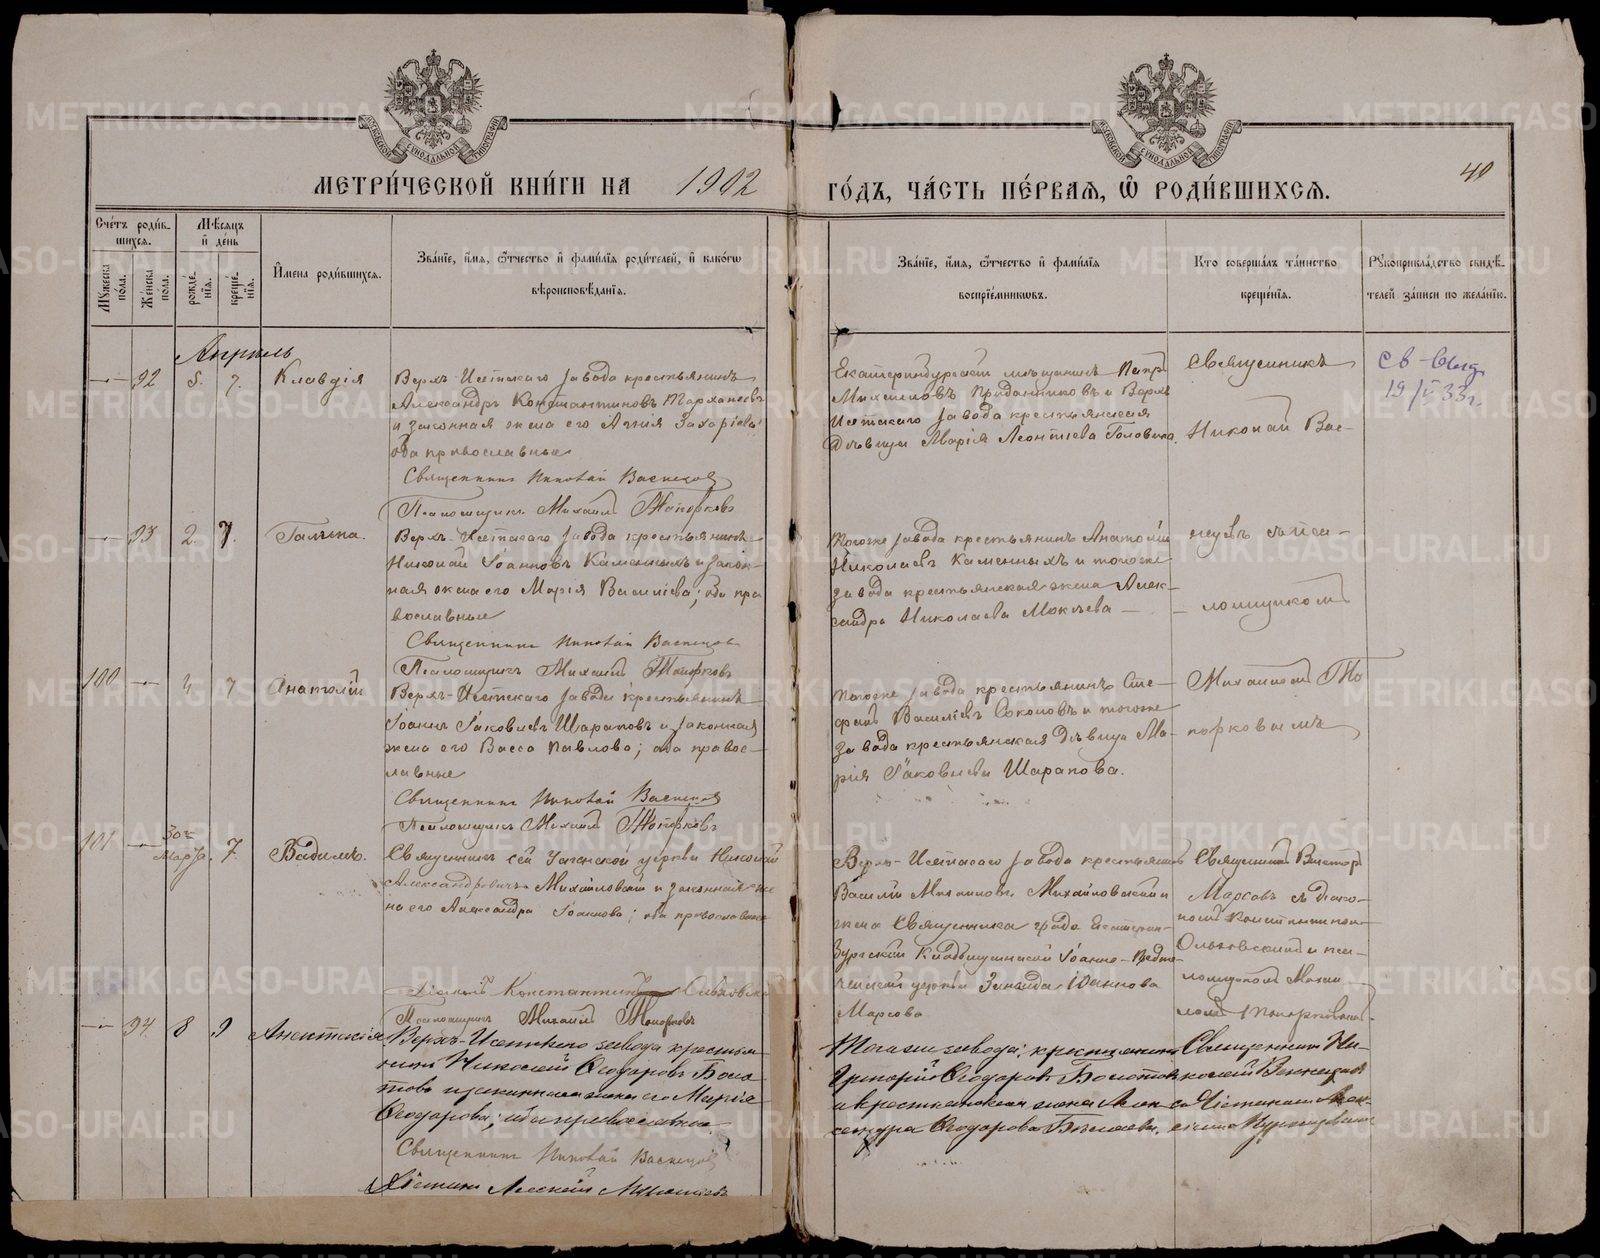 МЕТРИ́ЧЕСКОЙ КНИ́ГИ НА 1902
ГО́ДЪ, ЧА́СТЬ ПЕ́РВАѦ, Ѽ РОДИ́ВШИХСѦ.
40
Сче́тъ роди́в-
шихсѧ.
Мѣ́сѧцъ
и҆ де́нь
Мꙋ́жеска
по́ла.
Же́нска
по́ла.
рожде́-
нїѧ.
креще́-
нїѧ.
И҆мена роди́вшихсѧ.
Зва́нїе, и҆́мѧ, ѻ҆́тчество и҆ фами́лїѧ роди́телей, и҆ како́гѡ
вѣроисповѣ́данїѧ.
Зва́нїе, и҆́мѧ, ѻ҆́тчество и҆ фами́лїѧ
воспрїе́мниковъ.
Кто̀ соверша́лъ та́инство
креще́нїѧ.
Рꙋкоприкла́дство свидѣ́-
телей за́писи по жела́нїю.
Апрѣль
92 5. 7. Клавдія
Верхъ-Исетскаго завода крестьянинъ
Александръ Константиновъ Тархановъ
и законная жена его Агнія Захаріева
оба православные
Священникъ Николай Васнецов
Псаломщикъ Михаилъ Топорковъ
Екатеринбургскій мѣщанинъ Петръ
Михаиловъ и Верхъ
Исетскаго завода крестьянская
Дѣвица Марія Леонтіева Головина
Священникъ
Николай Вас-
св-выд
19/V 33г.
93 2. 7. Галина.
Верхъ-Исетскаго завода крестьянинъ
Николай Іоанновъ Каменныхъ и закон-
ная жена его Марія Василіева; оба пра
вославные
Священникъ Николай Васнецов
Псаломщикъ Михаилъ Топорковъ
Тогоже завода крестьянинъ Анатолій
Николаевъ Каменныхъ и тогоже
завода крестьянская жена Алек-
сандра Николаева Мокѣева
нецовъ съ пса-
ломщикомъ
100 4 7 Анатолій
Верхъ-Исетскаго завода крестьянинъ
Іоаннъ Іаковлевъ Шараповъ и законная
жена его Васса Павлова; оба правос-
лавные
Священникъ Николай Васнецов
Псаломщикъ Михаилъ Топорковъ
Тогоже завода крестьянинъ Сте-
фанъ Василіевъ Соколовъ и тогоже
завода крестьянская дѣвица Ма-
рія Іаковлева Шарапова.
Михаиломъ То
порковымъ
101 30го Марта 7 Вадимъ.
Священникъ сей Успенской церкви Николай
Александровичъ Михайловскій и законная же
на его Александра Іоаннова; оба православные
Діаконъ Константинъ
Псаломщикъ Михаилъ Топорковъ
Верхъ-Исетскаго завода крестьянинъ
Василій Михаиловъ Михайловскій и
жена Священника града Екатерин-
бургской Кладбищенской Іоанно-Предте-
ченской церкви Зинаида Іоаннова
Марсова
Священникъ Викторъ
Марсовъ съ діако-
номъ Константиномъ
и пса-
ломщикомъ Михаи
ломъ Топорковымъ
94 8 9 Анастасія
Верхъ-Исетскаго завода крестья-
нинъ Николай Ѳеодоровъ Боло
товъ и законная жена его Марія
Ѳеодорова; оба православные.
Священникъ Николай Васнецов
Діаконъ Алексій
Тогоже завода, крестьянинъ
Григорій Ѳеодоровъ Болотовъ
и крестьянская жена Алек-
сандра Ѳеодорова
Священникъ Ни-
колай Васнецовъ
съ Діакономъ Але-